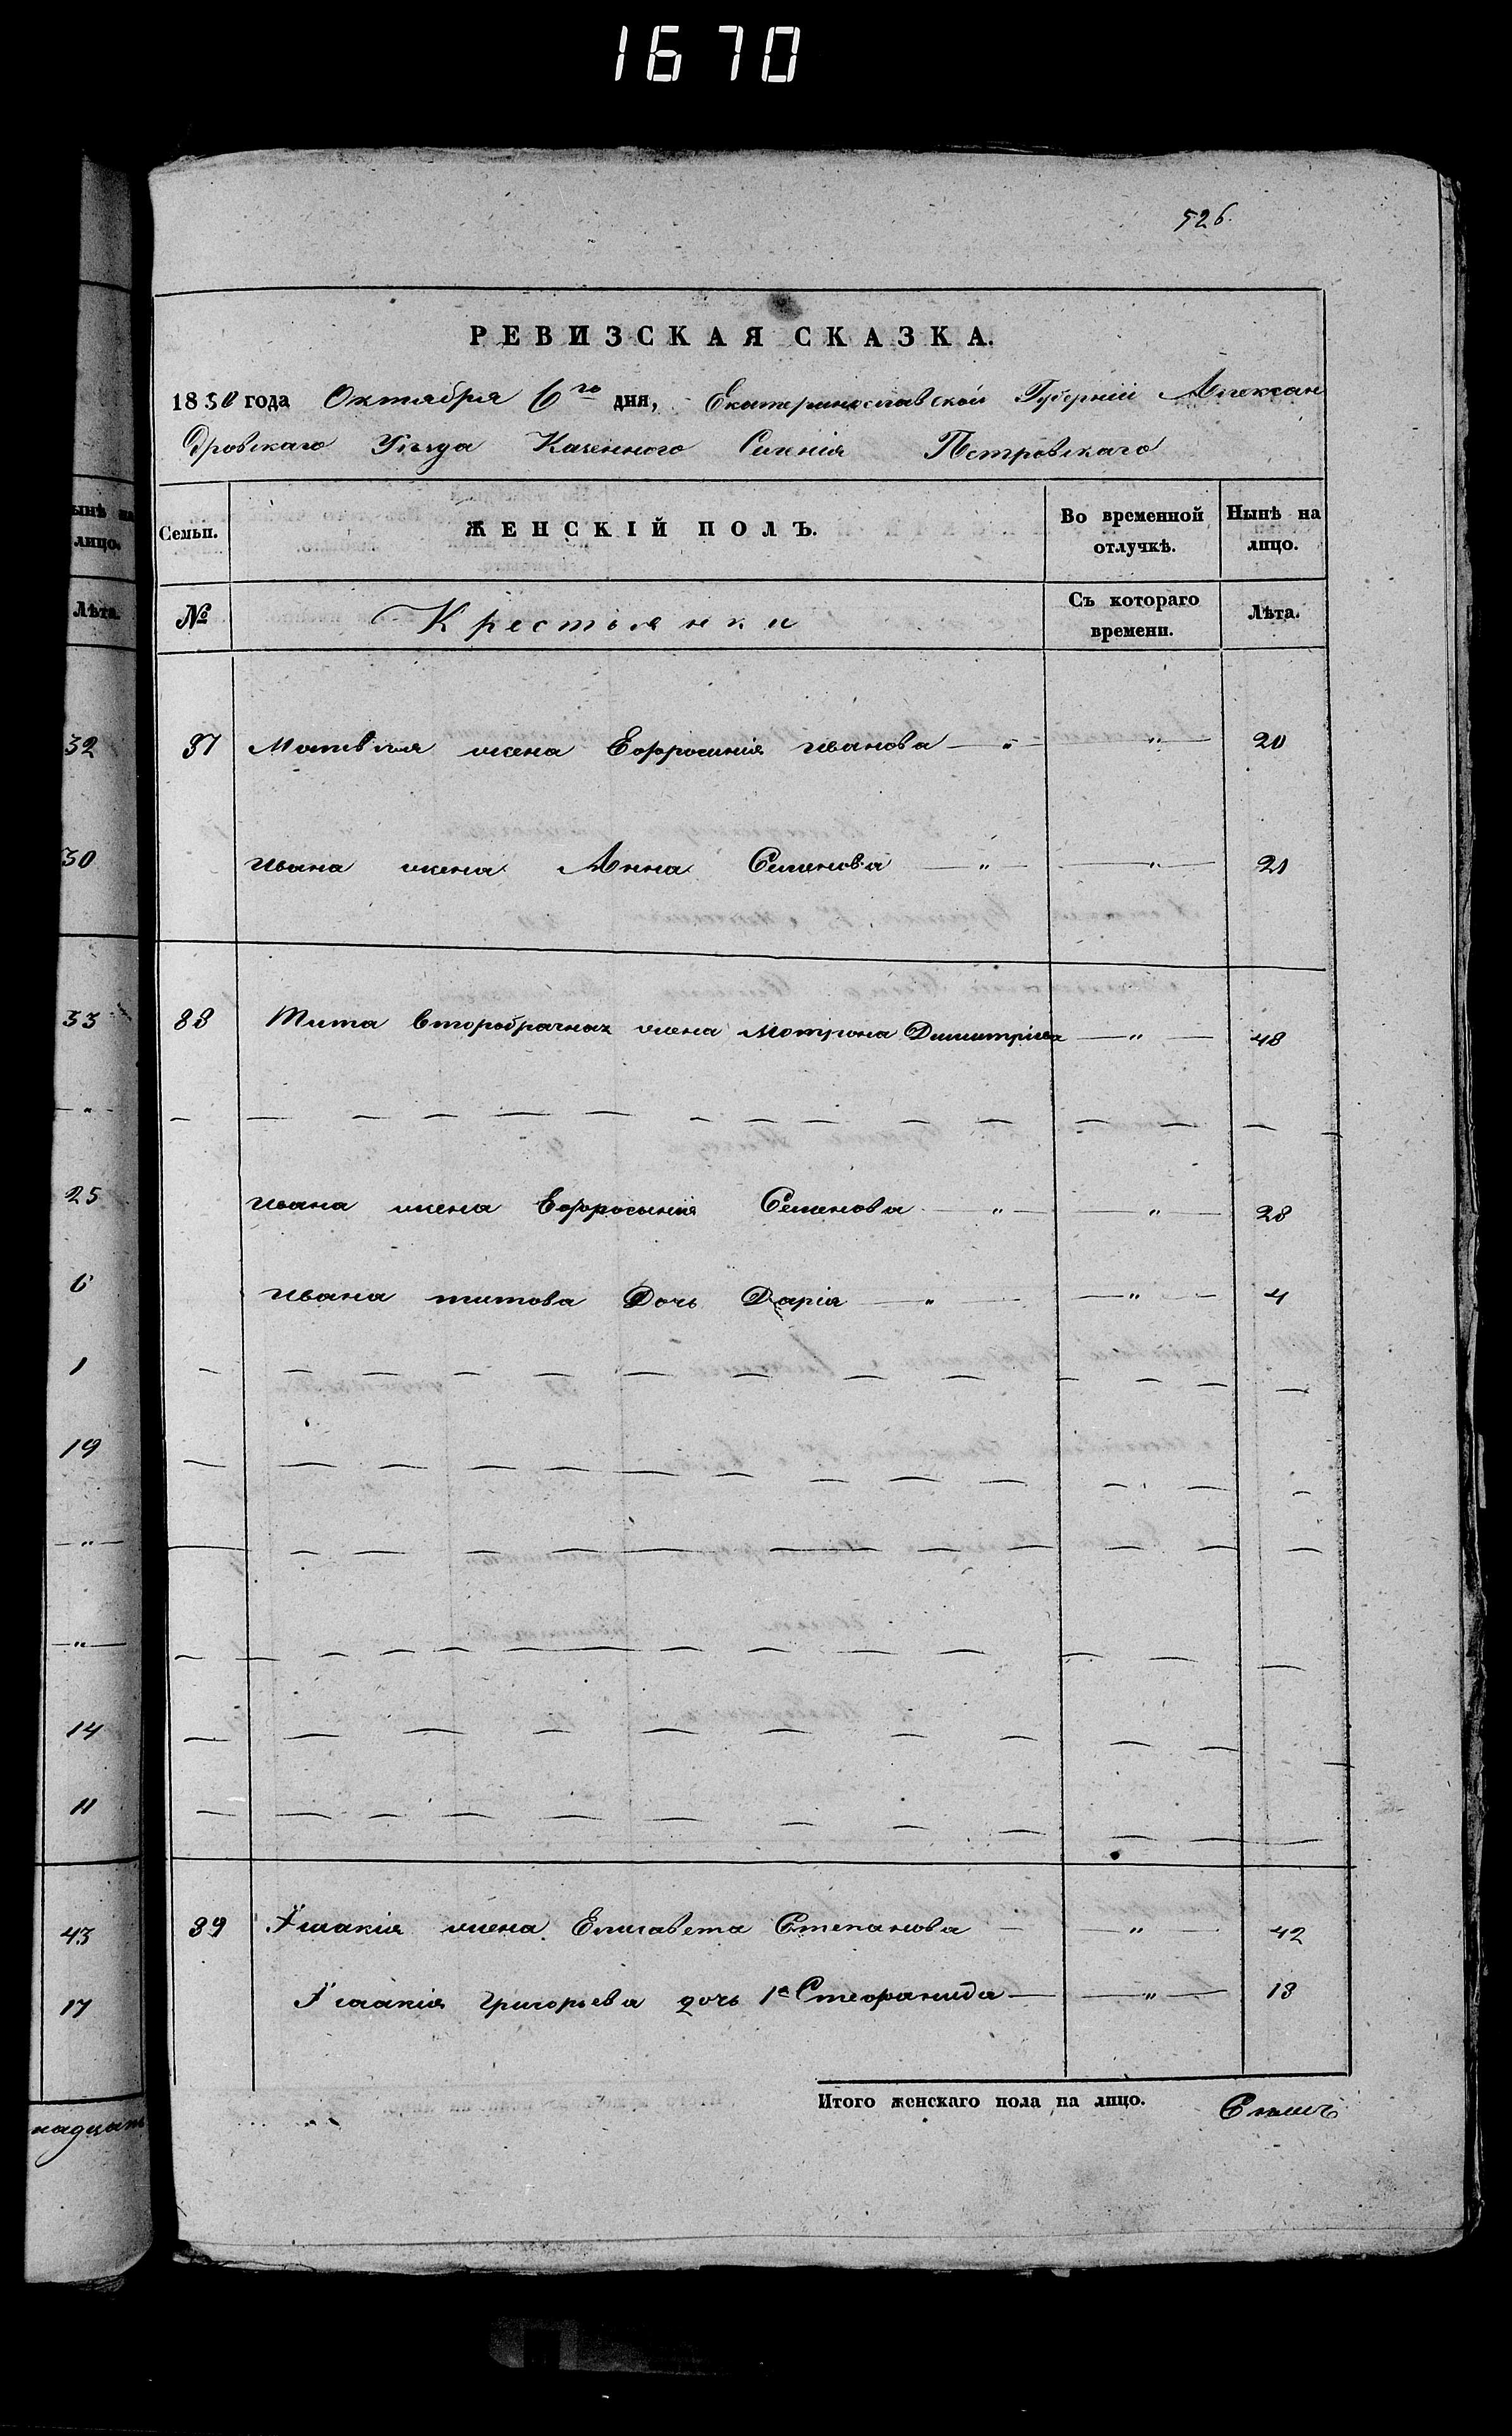 1670
526.
РЕВИЗСКАЯ СКАЗКА.
1850 года Октября 6го дня, Екатеринославской Губерніи Алексан
дровскаго Уѣзда Казенного Селенія Петровскаго
ынѣ на лицо.
Лѣта.
Семьи. ЖЕНСКІЙ ПОЛЪ. Во временной отлучкѣ. Нынѣ на лицо.
№ Крестьянки Съ котораго времени. Лѣта.
32 87 Матвѣя жена Ефросинія Иванова — " — — " — 20
30 Ивана жена Анна Семенова — " — — " — 21
33 88 Тита второбрачная жена Мотрона Димитріева — " — 48
— " —
25 Ивана жена Ефросинія Семенова — " — — " — 28
6 Ивана Титова Дочь Дарія — " — — " — 4
1
19
— " —
— " —
14
11
43 89 Ісаакія жена Елисавета Степанова — — " — 42
17 Ісаакія Григорьева дочь 1я Стефанида — — " — 13
надцать
Итого женскаго пола на лицо. Семь